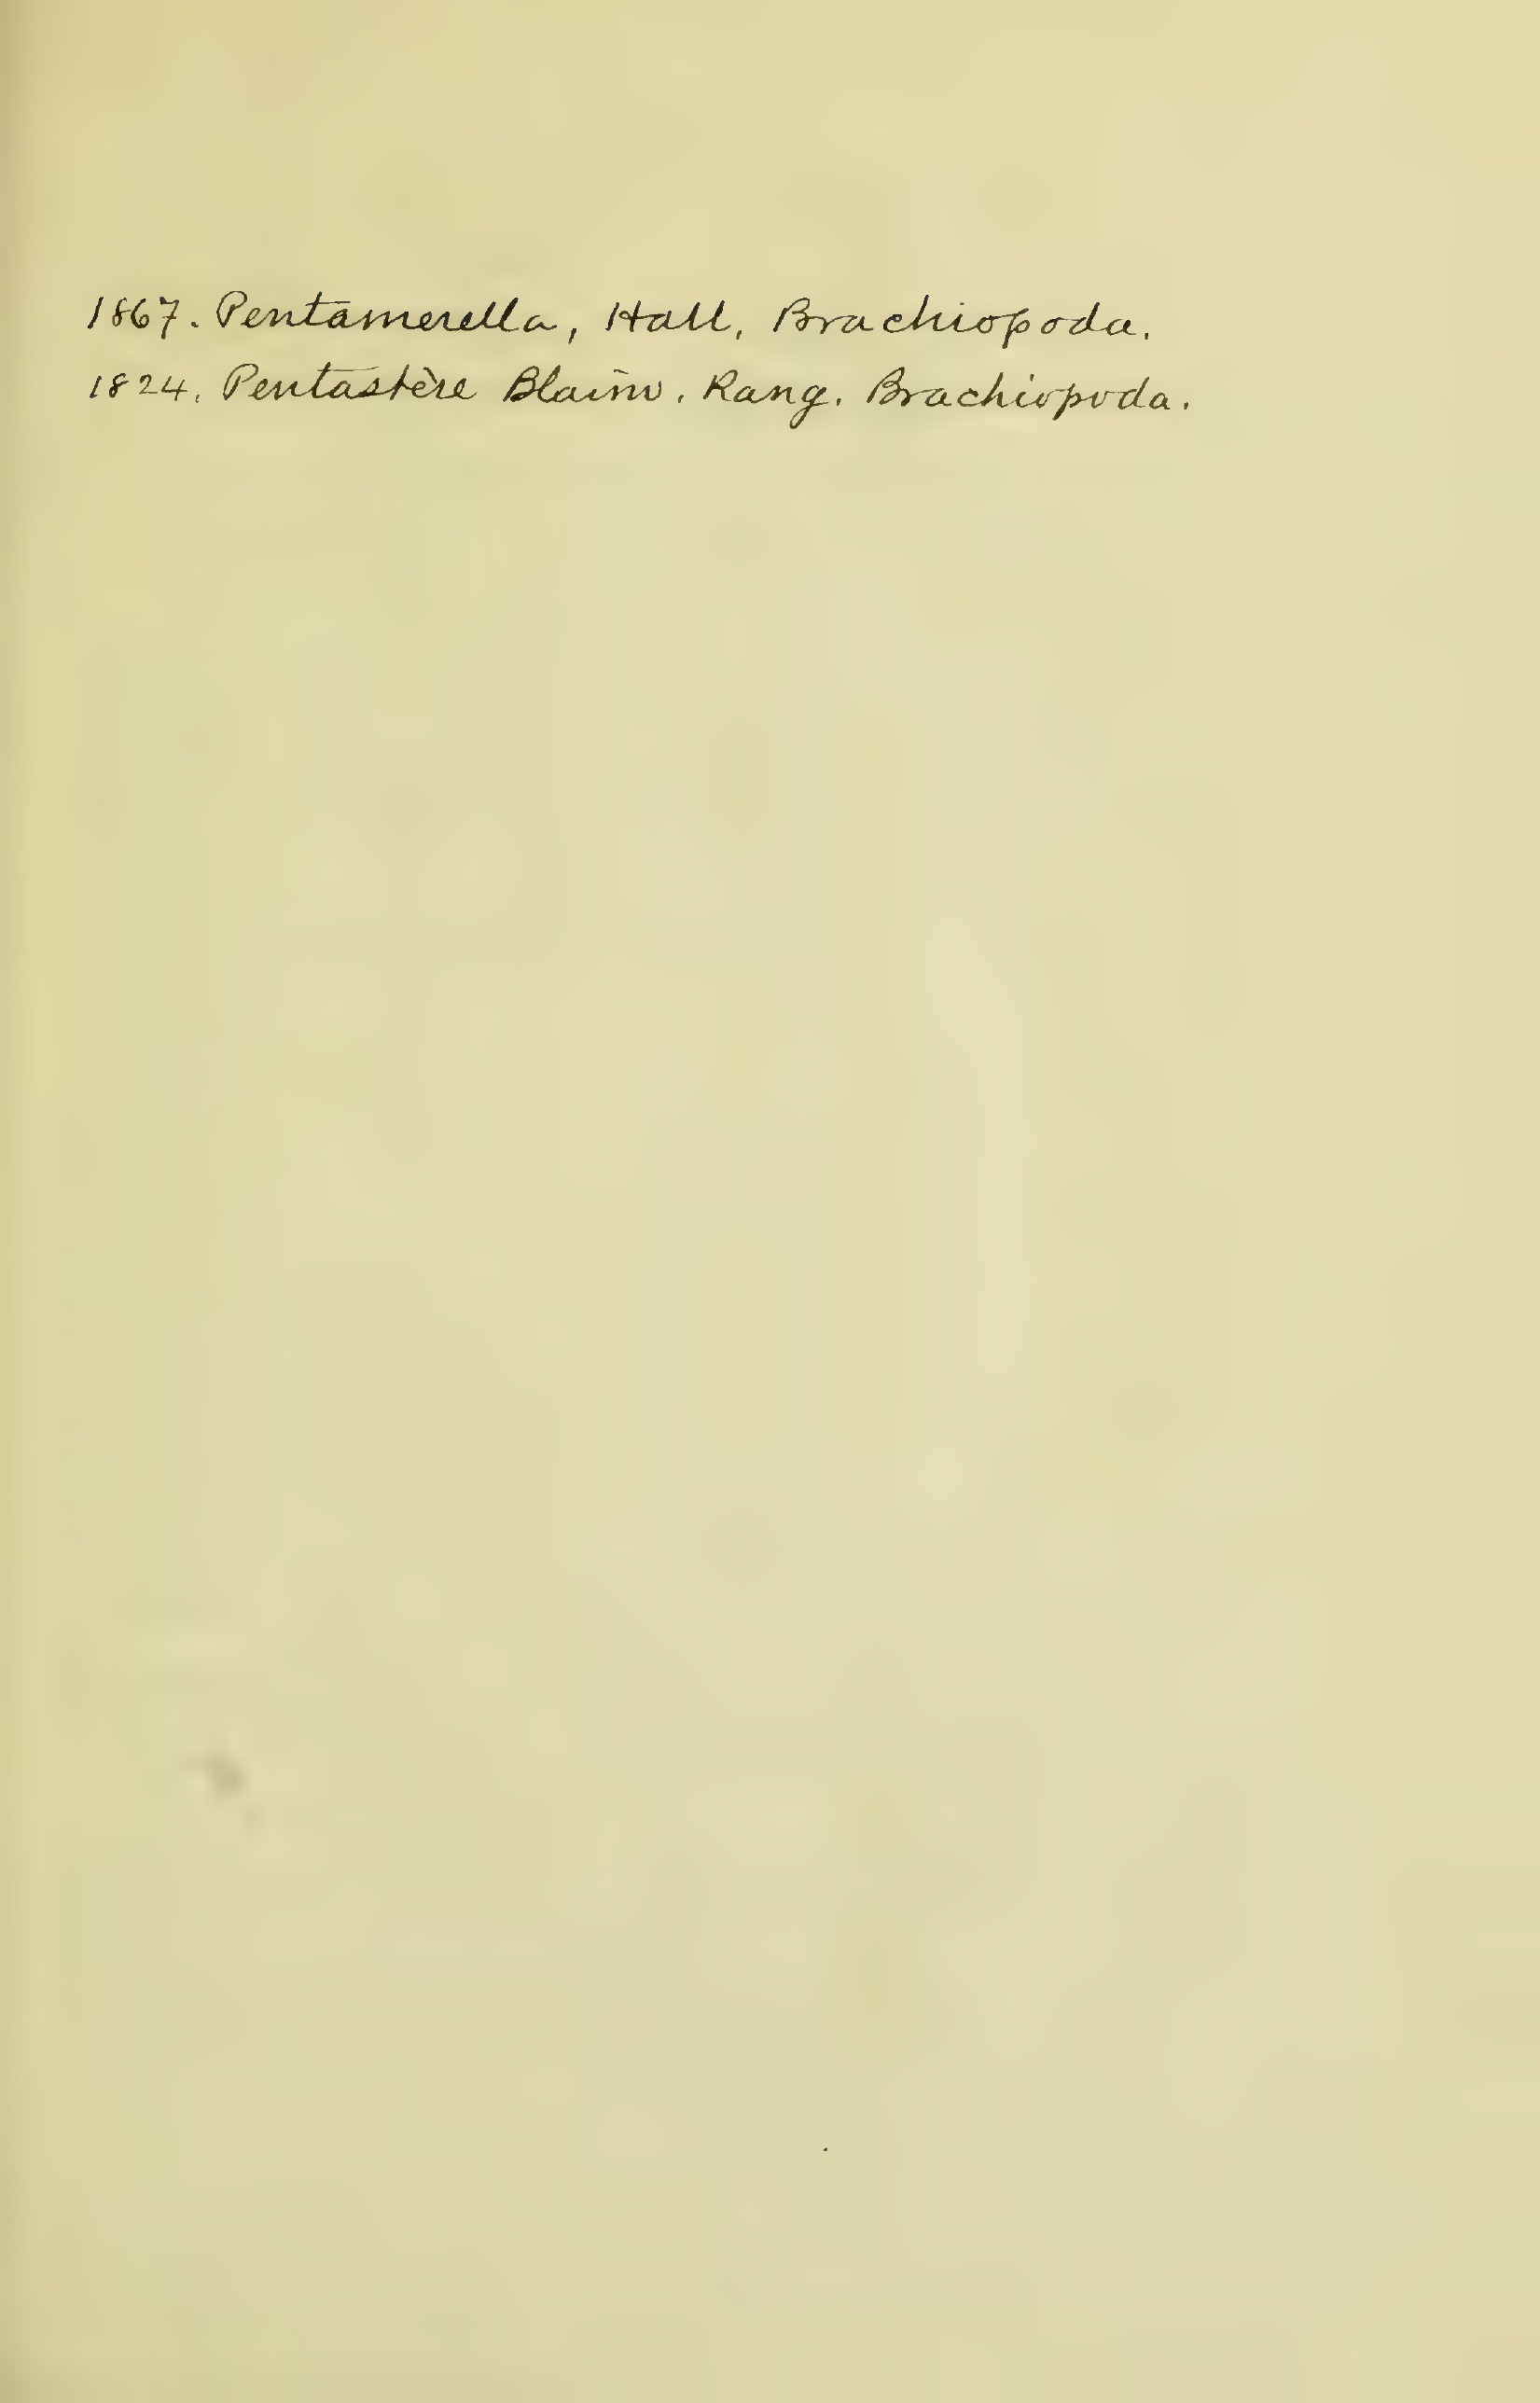 1867. Pentamerella, Hall, Brachiopoda.
1824. Pentastère Blainv. Rang. Brachiopoda.